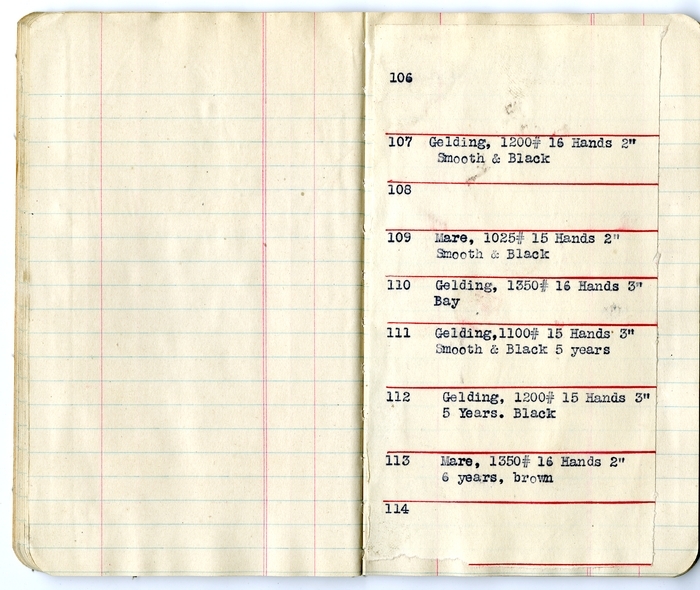 106
107 Gelding, 1200# 16 Hands 2"
Smooth & Black
108
109 Mare, 1025# 15 Hands 2"
Smooth & Black
110 Gelding, 1350# 16 Hands 3"
Bay
111 Gelding,1100# 15 Hands 3"
Smooth & Black 5 years
112 Gelding, 1200# 15 Hands 3"
5 Years. Black
113 Mare, 1350# 16 Hands 2"
6 years, brown
114